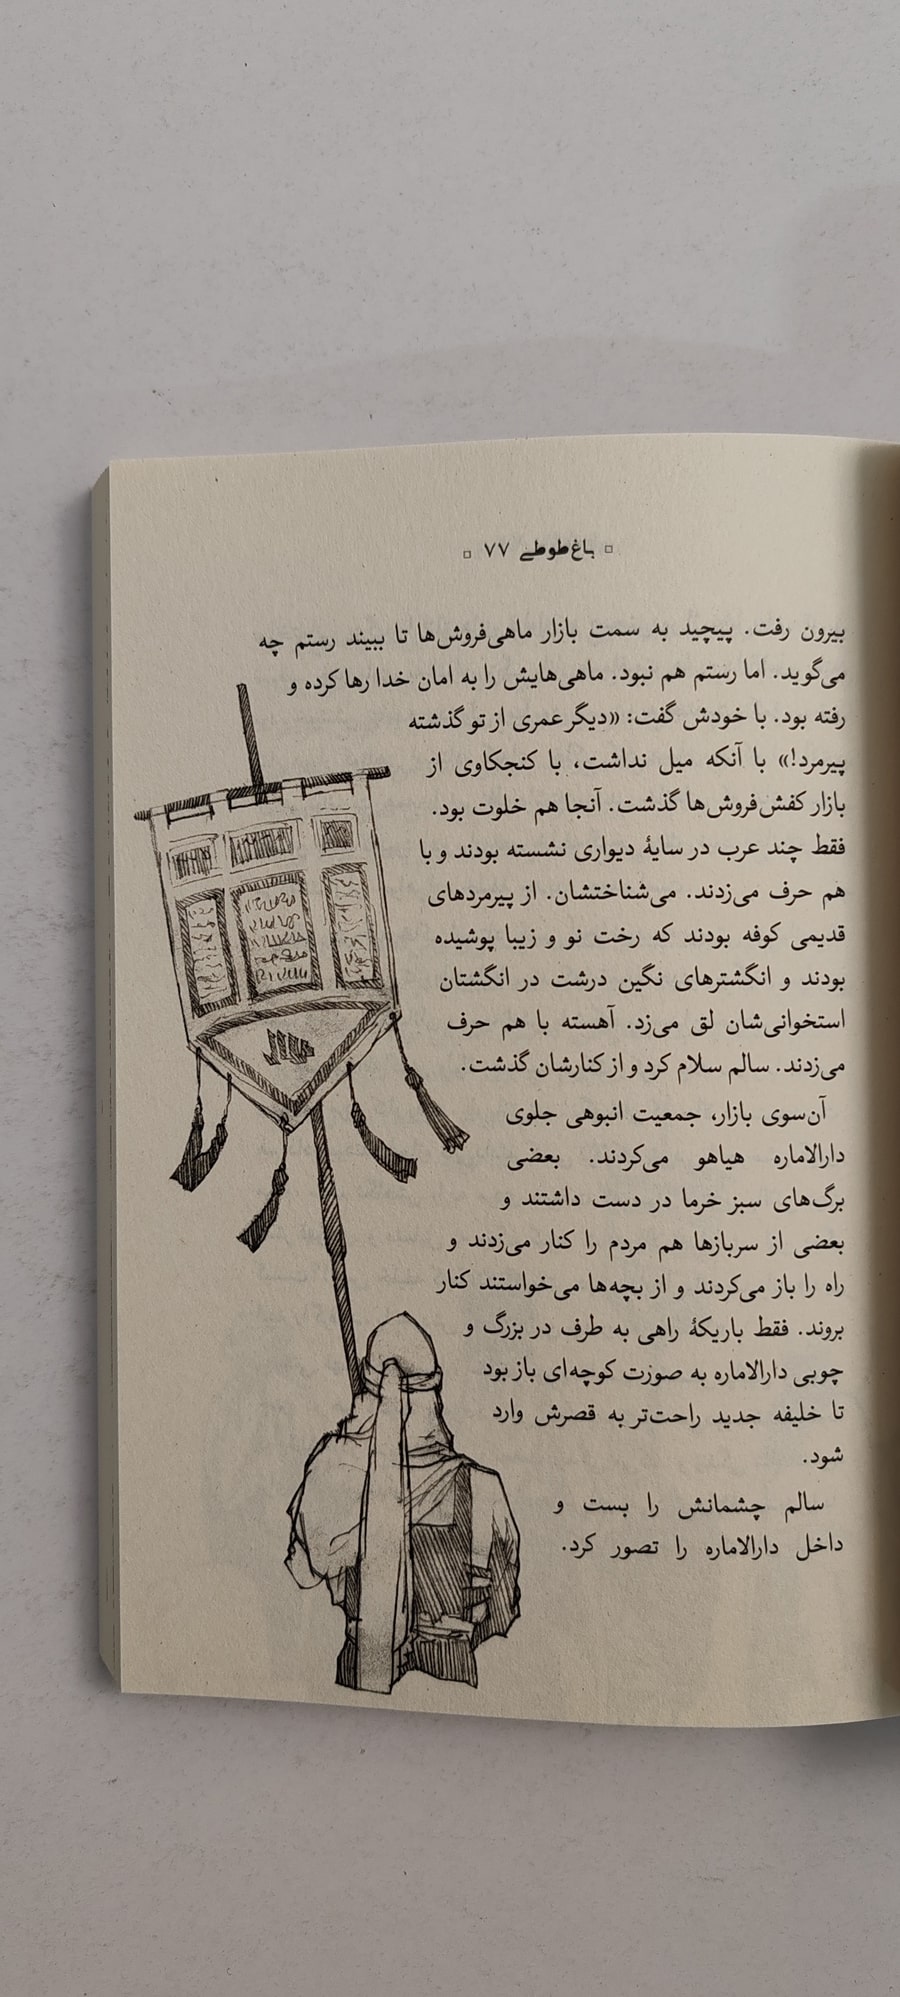 باغ طوطی ۷۷
بیرون رفت. پیچید به سمت بازار ماهی‌فروش‌ها تا ببیند رستم چه
می‌گوید. اما رستم هم نبود. ماهی‌هایش را به امان خدا رها کرده و
رفته بود. با خودش گفت: «دیگر عمری از تو گذشته
پیرمرد!» با آنکه میل نداشت، با کنجکاوی از
بازار کفش‌فروش‌ها گذشت. آنجا هم خلوت بود.
فقط چند عرب در سایهٔ دیواری نشسته بودند و با
هم حرف می‌زدند. می‌شناختشان. از پیرمردهای
قدیمی کوفه بودند که رخت نو و زیبا پوشیده
بودند و انگشترهای نگین درشت در انگشتان
استخوانی‌شان لق می‌زد. آهسته با هم حرف
می‌زدند. سالم سلام کرد و از کنارشان گذشت.
آن‌سوی بازار، جمعیت انبوهی جلوی
دارالاماره هیاهو می‌کردند. بعضی
برگ‌های سبز خرما در دست داشتند و
بعضی از سربازها هم مردم را کنار می‌زدند و
راه را باز می‌کردند و از بچه‌ها می‌خواستند کنار
بروند. فقط باریکهٔ راهی به طرف در بزرگ و
چوبی دارالاماره به صورت کوچه‌ای باز بود
تا خلیفه جدید راحت‌تر به قصرش وارد
شود.
سالم چشمانش را بست و
داخل دارالاماره را تصور کرد.